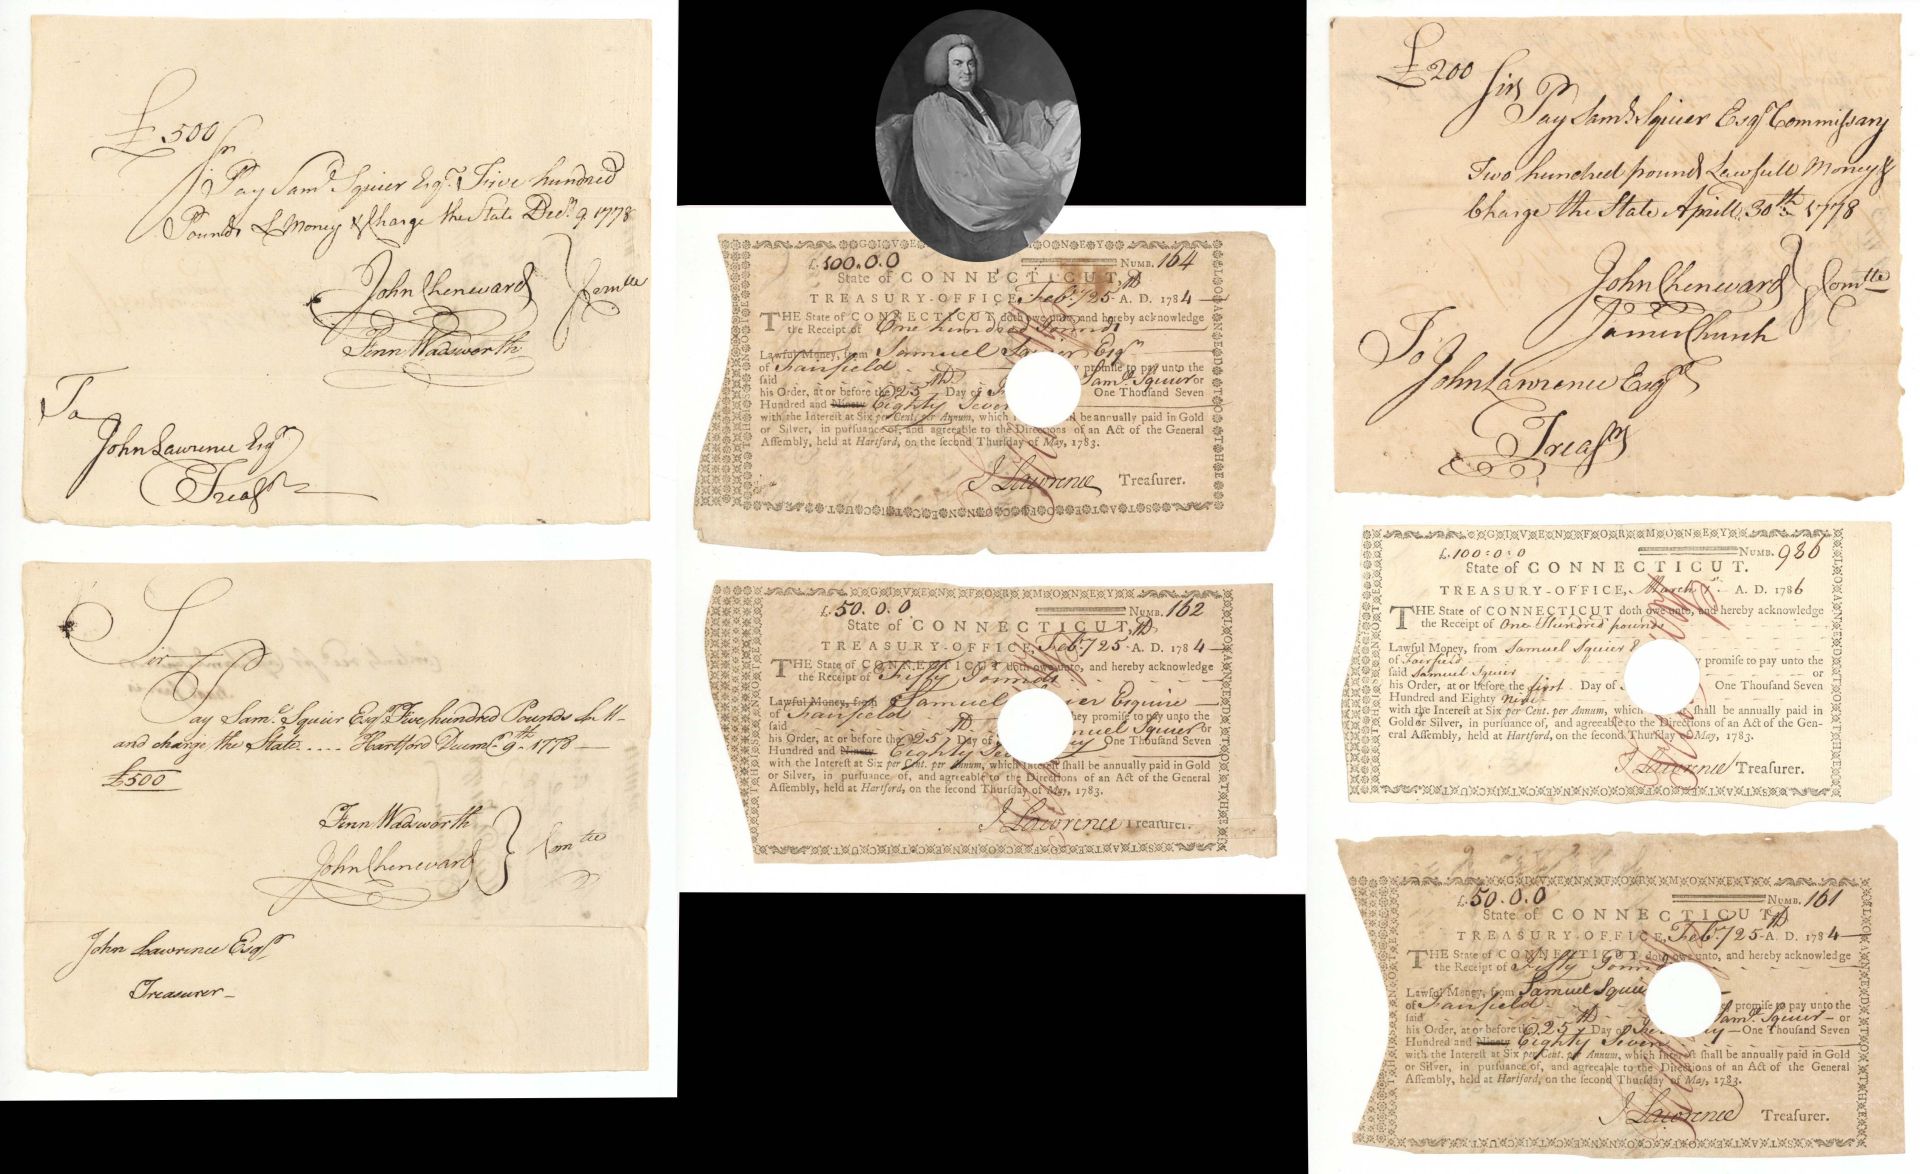 £500
Sr
Pay Saml Squier Esqr. Five hundred
Pounds L Money & Charge the State Decr. 9. 1778
John Chenward
Fenn Wadsworth
Comtte
To
John Lawrence Esqr
Treasr
Sir
Pay Saml Squier Esqr. Five hundred Pounds
and charge the State .... Hartford Decembr. 9th. 1778
£500
Fenn Wadsworth
John Chenward
Comtte
John Lawrence Esqr
Treasurer
GIVEN FOR MONEY
£.100.0.0 NUMB. 164
State of CONNECTICUT,
TREASURY-OFFICE, Feby. 25th A. D. 1784
THE State of CONNECTICUT doth owe unto, and hereby acknowledge
the Receipt of One hundred Pounds
Lawful Money, from Samuel Squier Esqr
of Fairfield promise to pay unto the
said Saml. Squier or
his Order, at or before the 25th Day of One Thousand Seven
Hundred and Ninety Eighty Seven
with the Interest at Six per Cent. per Annum, which be annually paid in Gold
or Silver, in pursuance of, and agreeable to the Directions of an Act of the General
Assembly, held at Hartford, on the second Thursday of May, 1783.
J Lawrence Treasurer.
STATE OF CONNECTICUT
LOANED TO THE
THIS NOTE
GIVEN FOR MONEY
£.50.0.0 NUMB. 162
State of CONNECTICUT,
TREASURY-OFFICE, Feby. 25th A. D. 1784
THE State of CONNECTICUT doth owe unto, and hereby acknowledge
the Receipt of Fifty Pounds
Lawful Money, from Samuel Squier Esquire
of Fairfield they promise to pay unto the
said Samuel Squier or
his Order, at or before the 25th Day of One Thousand Seven
Hundred and Ninety Eighty Seven
with the Interest at Six per Cent. per Annum, which Interest shall be annually paid in Gold
or Silver, in pursuance of, and agreeable to the Directions of an Act of the General
Assembly, held at Hartford, on the second Thursday of May, 1783.
J Lawrence Treasurer.
STATE OF CONNECTICUT
LOANED TO THE
THIS NOTE
£200
Sir
Pay Saml Squier Esqr Commissary
Two hundred pounds Lawfull Money &
Charge the State Aprill 30th 1778
John Chenward
James Church
Comtte
To
John Lawrence Esqr
Treasr
GIVEN FOR MONEY
£.100:0:0 NUMB. 986
State of CONNECTICUT.
TREASURY-OFFICE, March 1st A. D. 1786
THE State of CONNECTICUT doth owe unto, and hereby acknowledge
the Receipt of One Hundred pounds
Lawful Money, from Samuel Squier
of Fairfield promise to pay unto the
said Samuel Squier or
his Order, at or before the first Day of One Thousand Seven
Hundred and Eighty Nine
with the Interest at Six per Cent. per Annum, which shall be annually paid in
Gold or Silver, in pursuance of, and agreeable to the Directions of an Act of the Gen-
eral Assembly, held at Hartford, on the second Thursday of May, 1783.
J Lawrence Treasurer.
STATE OF CONNECTICUT
LOANED TO THE
THIS NOTE
GIVEN FOR MONEY
£.50.0.0 NUMB. 161
State of CONNECTICUT,
TREASURY-OFFICE, Feby. 25th A. D. 1784
THE State of CONNECTICUT doth owe unto, and hereby acknowledge
the Receipt of Fifty Pounds
Lawful Money, from Samuel Squier
of Fairfield promise to pay unto the
said Saml. Squier or
his Order, at or before the 25th Day of One Thousand Seven
Hundred and Ninety Eighty Seven
with the Interest at Six per Cent. per Annum, which Interest shall be annually paid in Gold
or Silver, in pursuance of, and agreeable to the Directions of an Act of the General
Assembly, held at Hartford, on the second Thursday of May, 1783.
J Lawrence Treasurer.
STATE OF CONNECTICUT
LOANED TO THE
THIS NOTE